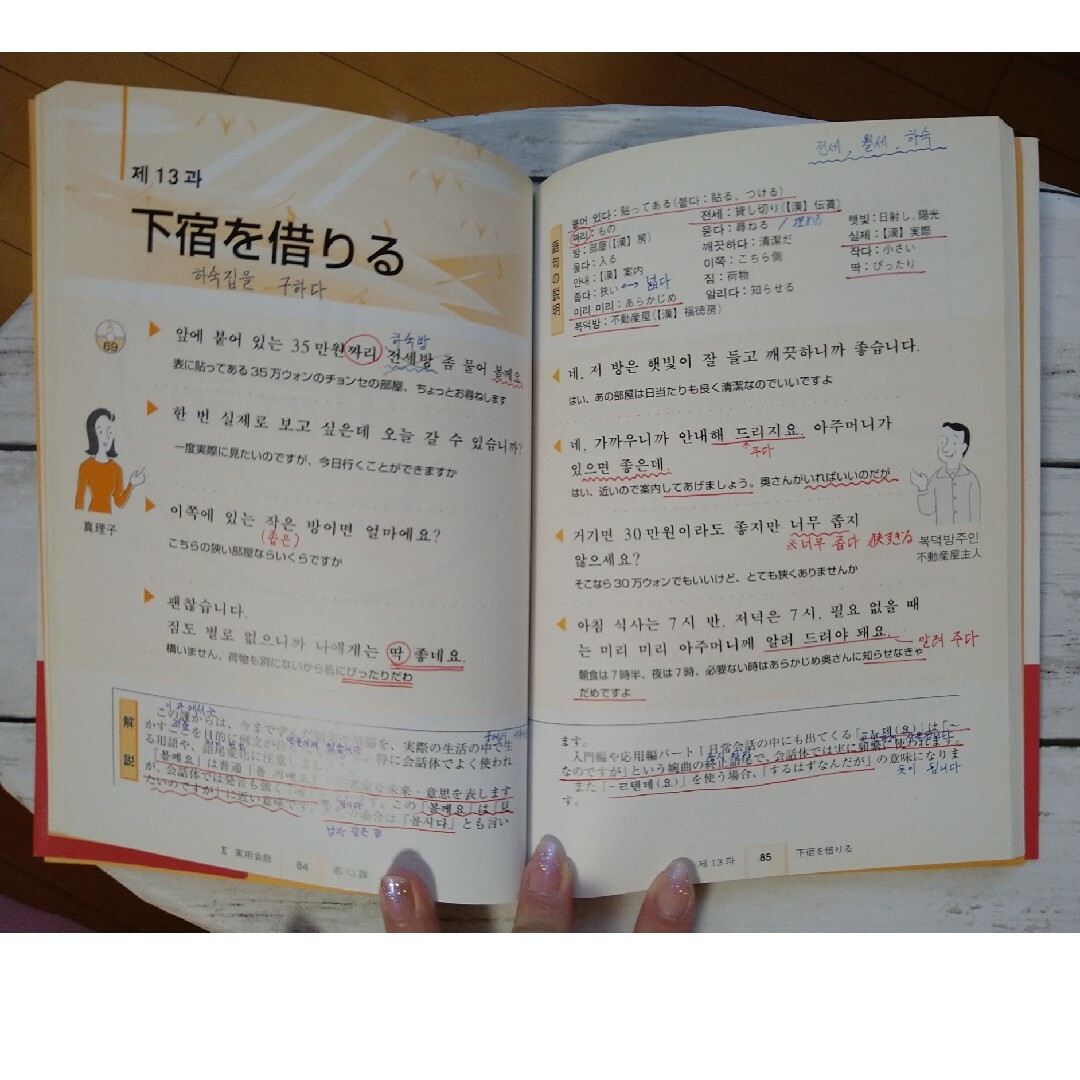 제13과
下宿を借りる
하숙집을 구하다
69
하숙방
앞에 붙어 있는 35만원짜리 전세방 좀 물어 볼께요
表に貼ってある35万ウォンのチョンセの部屋、ちょっとお尋ねします
한 번 실제로 보고 싶은데 오늘 갈 수 있습니까?
一度実際に見たいのですが、今日行くことができますか
이쪽에 있는 작은 방이면 얼마에요?
(좁은)
こちらの狭い部屋ならいくらですか
真理子
괜찮습니다.
짐도 별로 없으니까 나에게는 딱 좋네요.
構いません、荷物も別にないから私にぴったりだわ
解説
この課からは、今まで学んだ を、実際の生活の中で生
かすことを目的に例文が 特に会話体でよく使われ
る用語や、語尾変化に注意しましょう
「볼께요」は普通 未来・意思を表します
が、会話体では発音も強く この「볼께요」は「見
たいのですが」に近い意味です。 の場合は「봅시다」とも言い
II 実用会話
84
第13課
전세, 월세, 하숙
붙어 있다：貼ってある(붙다：貼る、つける)
짜리：もの
방：部屋(【漢】房)
들다：入る
안내：【漢】案内
좁다：狭い ↔ 넓다
미리 미리：あらかじめ
복덕방：不動産屋(【漢】福徳房)
전세：貸し切り(【漢】伝貰)
묻다：尋ねる / 埋める
깨끗하다：清潔だ
이쪽：こちら側
짐：荷物
알리다：知らせる
햇빛：日射し、陽光
실제：【漢】実際
작다：小さい
딱：ぴったり
네, 저 방은 햇빛이 잘 들고 깨끗하니까 좋습니다.
はい、あの部屋は日当たりも良く清潔なのでいいですよ
네, 가까우니까 안내해 드리지요. 아주머니가
주다
있으면 좋은데.
はい、近いので案内してあげましょう。奥さんがいればいいのだが
거기면 30만원이라도 좋지만 너무 좁지
너무 좁다 狭すぎる
않으세요?
そこなら30万ウォンでもいいけど、とても狭くありませんか
복덕방주인
不動産屋主人
아침 식사는 7시 반, 저녁은 7시, 필요 없을 때
는 미리 미리 아주머니께 알려 드려야 돼요.
알려 주다
朝食は7時半、夜は7時、必要ない時はあらかじめ奥さんに知らせなきゃ
だめですよ
ます。
入門編や応用編パート1日常会話の中にも出てくる は「～
なのですが」という婉曲の終止語尾で、会話体では実に頻繁に使われます。
また「-ㄹ텐데(요)」を使う場合、「するはずなんだが」の意味になりま
뜻이 됩니다
す。
제13과
85
下宿を借りる